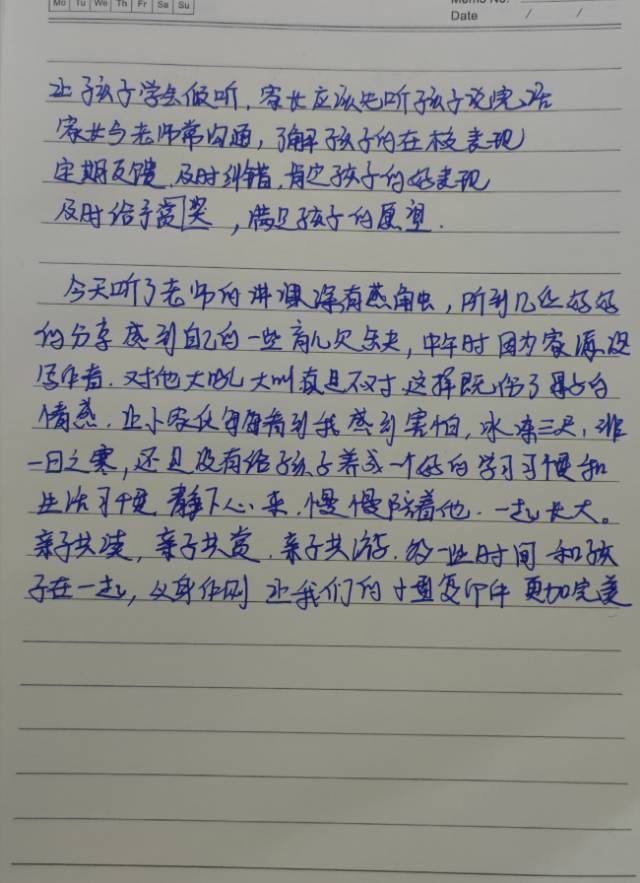 Mo Tu We Th Fr Sa Su
Memo No.
Date / /
让孩子学会倾听，家长应该先听孩子说完话
家长与老师常沟通，了解孩子的在校表现
定期反馈，及时纠错，肯定孩子的好表现
及时给予赏奖，满足孩子的愿望.
今天听了老师的讲课深有感触，听到几位妈妈
的分享感到自己的一些育儿欠缺，中午时因为家庭没
写作者，对他大吼大叫真是不对，这样既伤了母子的
情感，让小家伙每每看到我感到害怕，冰冻三尺，非
一日之寒，还是没有给孩子养成一个好的学习习惯和
生活习惯，静下心来，慢慢陪着他，一起长大。
亲子共读，亲子共赏，亲子共游，多一些时间和孩
子在一起，以身作则让我们的复印件更加完美